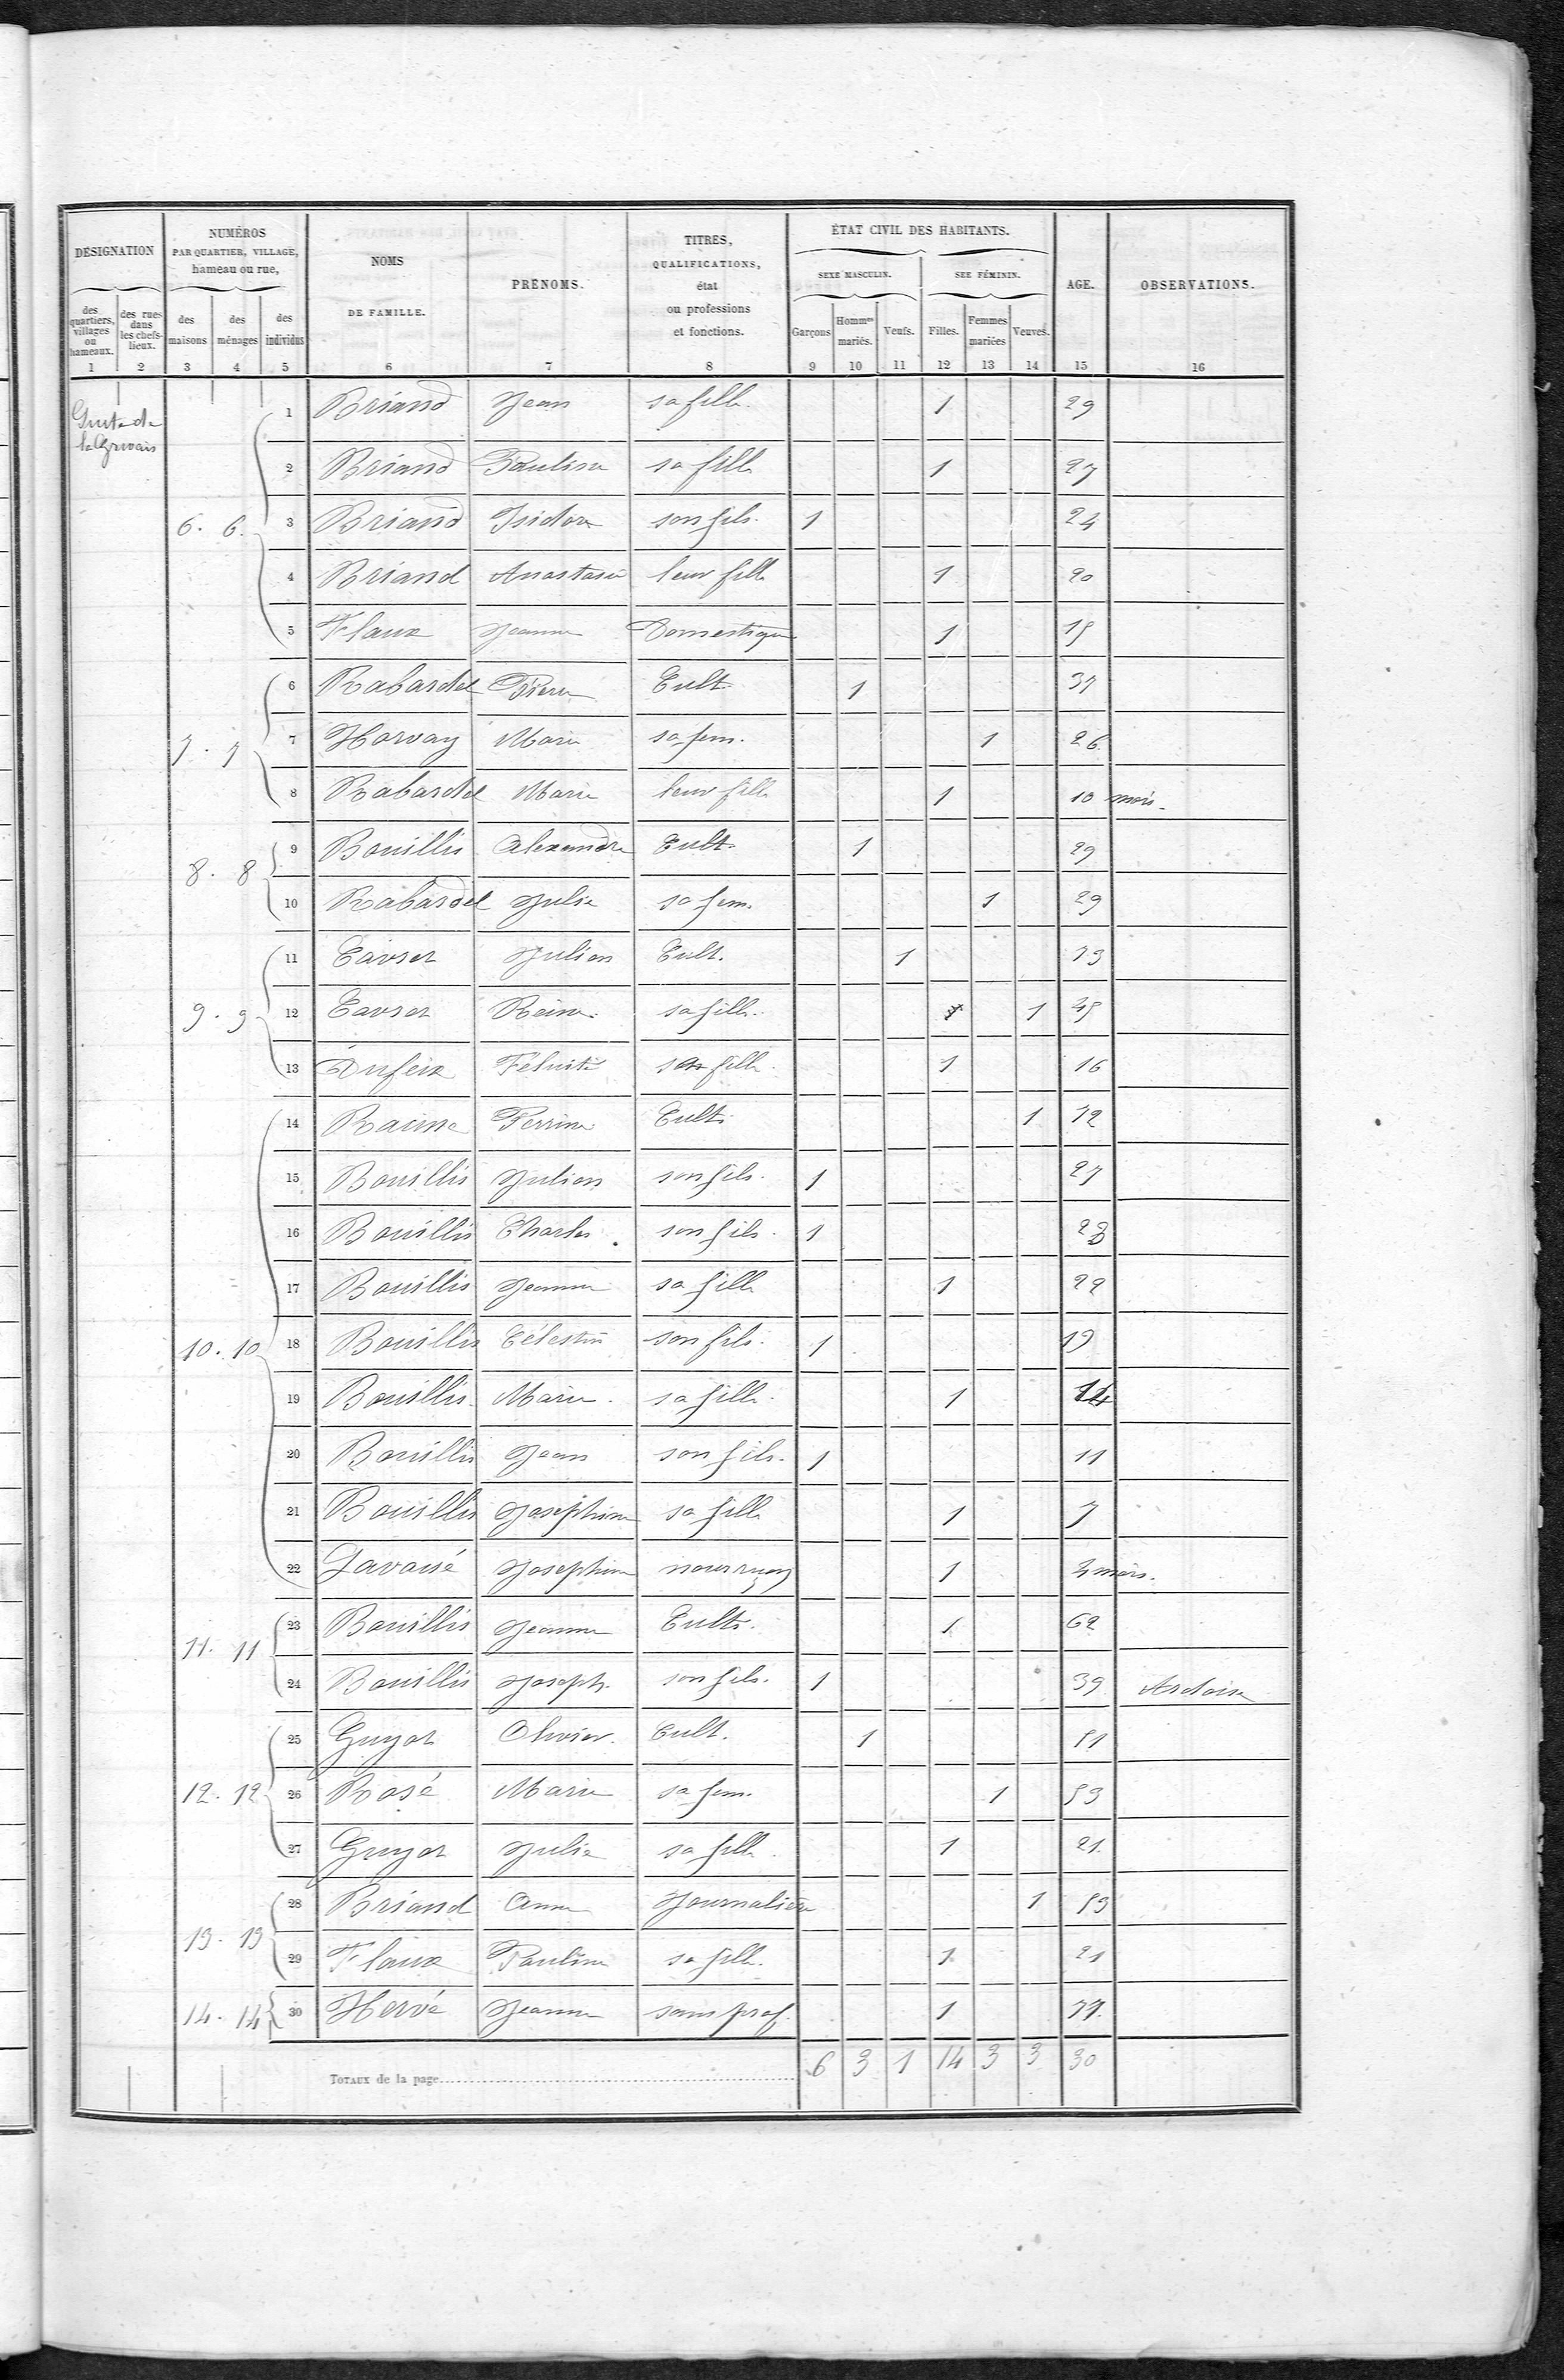 DÉSIGNATION
des quartiers, villages ou hameaux.
des rues dans les chefs-lieux.
NUMÉROS
PAR QUARTIER, VILLAGE,
hameau ou rue,
des maisons
des ménages
des individus
NOMS
DE FAMILLE.
PRÉNOMS.
TITRES,
QUALIFICATIONS,
état
ou professions
et fonctions.
ÉTAT CIVIL DES HABITANTS.
SEXE MASCULIN.
SEE FÉMININ.
Garçons
Hommes mariés.
Veufs.
Filles.
Femmes mariées
Veuves.
AGE.
OBSERVATIONS.
1 2 3 4 5 6 7 8 9 10 11 12 13 14 15 16
1 Briand Jean sa fille 1 29
2 Briand Pauline sa fille 1 27
6. 6. 3 Briand Isidore son fils. 1 24
4 Briand Anastasie leur fille 1 20
5 Flaux Jeanne Domestique 1 15
6 Rabardel Pierre Cult. 1 37
7. 7 7 Horvay Marie sa fem. 1 26
8 Rabardel Marie leur fille 1 10 mois.
8. 8 9 Bouillis Alexandre Cult. 1 29
10 Rabardel Julie sa fem. 1 29
11 Julien Cult. 1 73
9. 9 12 Reine sa fille. 1 45
13 Dufeix Félicité sa fille. 1 16
14 Perrine Cult. 1 12
15 Bouillis Julien son fils. 1 27
16 Bouillis Charles. son fils. 1 23
17 Bouillis Jeanne sa fille 1 22
10. 10 18 Bouillis Célestin son fils. 1 19
19 Bouillis. Marie. sa fille 1 14
20 Bouillis Jean son fils. 1 11
21 Bouillis Joséphine sa fille 1 7
22 Joséphine 1 mois.
11. 11 23 Bouillis Jeanne Cult. 1 62
24 Bouillis Joseph. son fils. 1 39
25 Guyot Olivier. Cult. 1 51
12. 12 26 Rosé Marie sa fem. 1 53
27 Guyot Julie sa fille. 1 21
28 Briand Anne Journalière 1 53
13. 13 29 Flaux Pauline sa fille. 1 21
14. 14 30 Hervé Jeanne sans prof. 1 77.
TOTAUX de la page 6 3 1 14 3 3 30